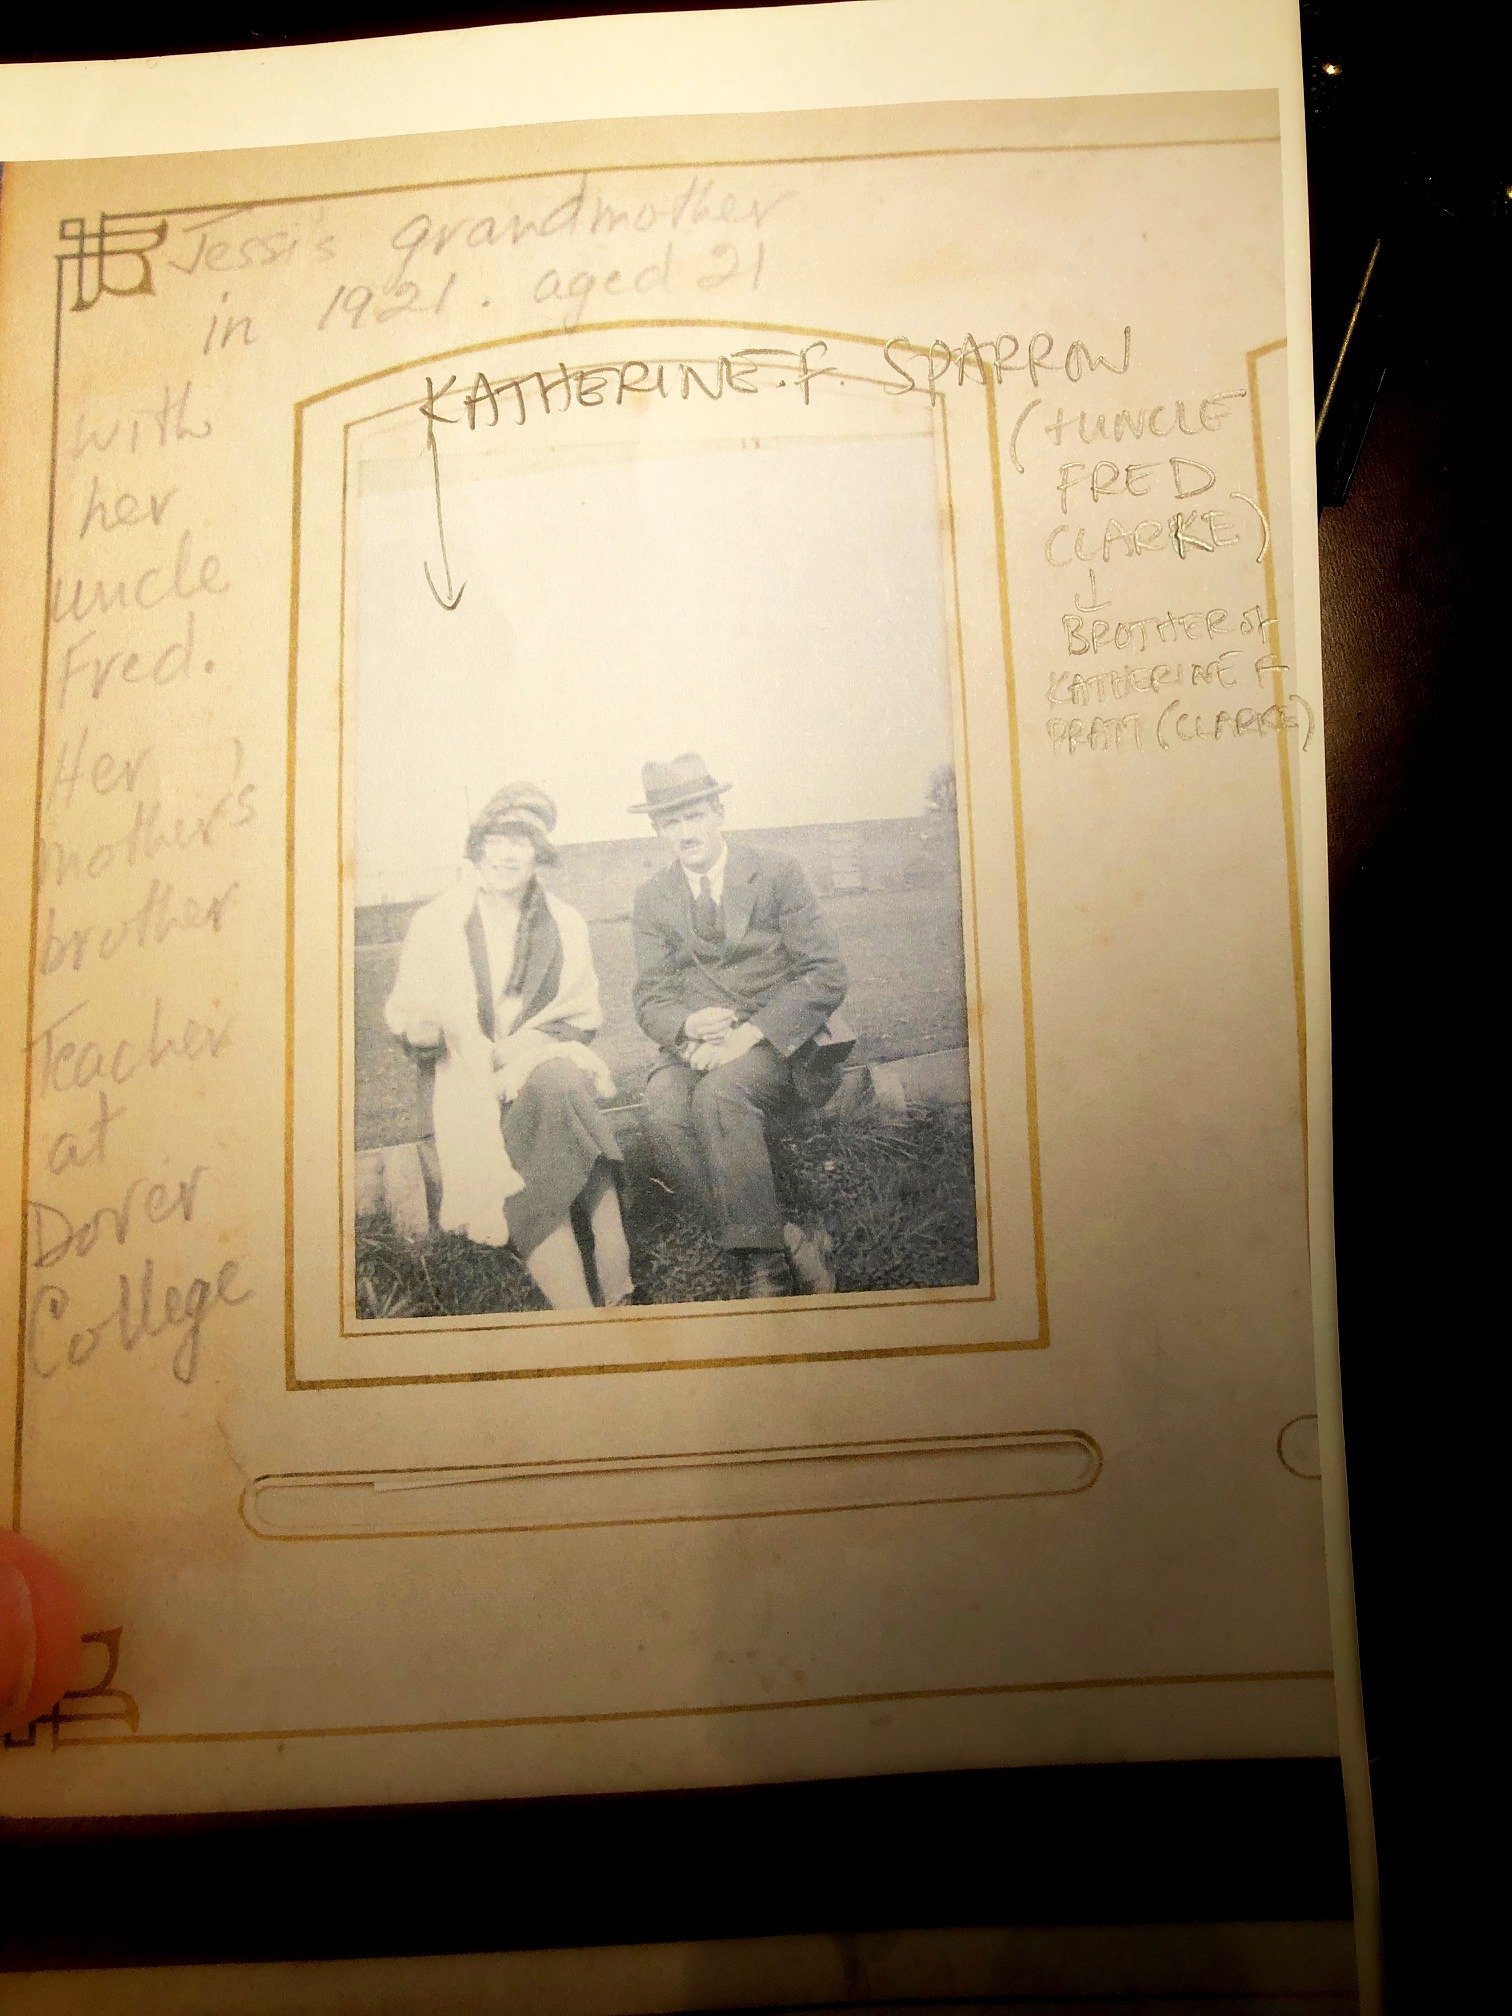 Jessi's grandmother
in 1921. aged 21
with
her
uncle
Fred.
Her
mother's
brother
Teacher
at
Dover
College
KATHERINE. F. SPARROW
(+UNCLE
FRED
CLARKE)
BROTHER of
KATHERINE F
PRATT (CLARKE)